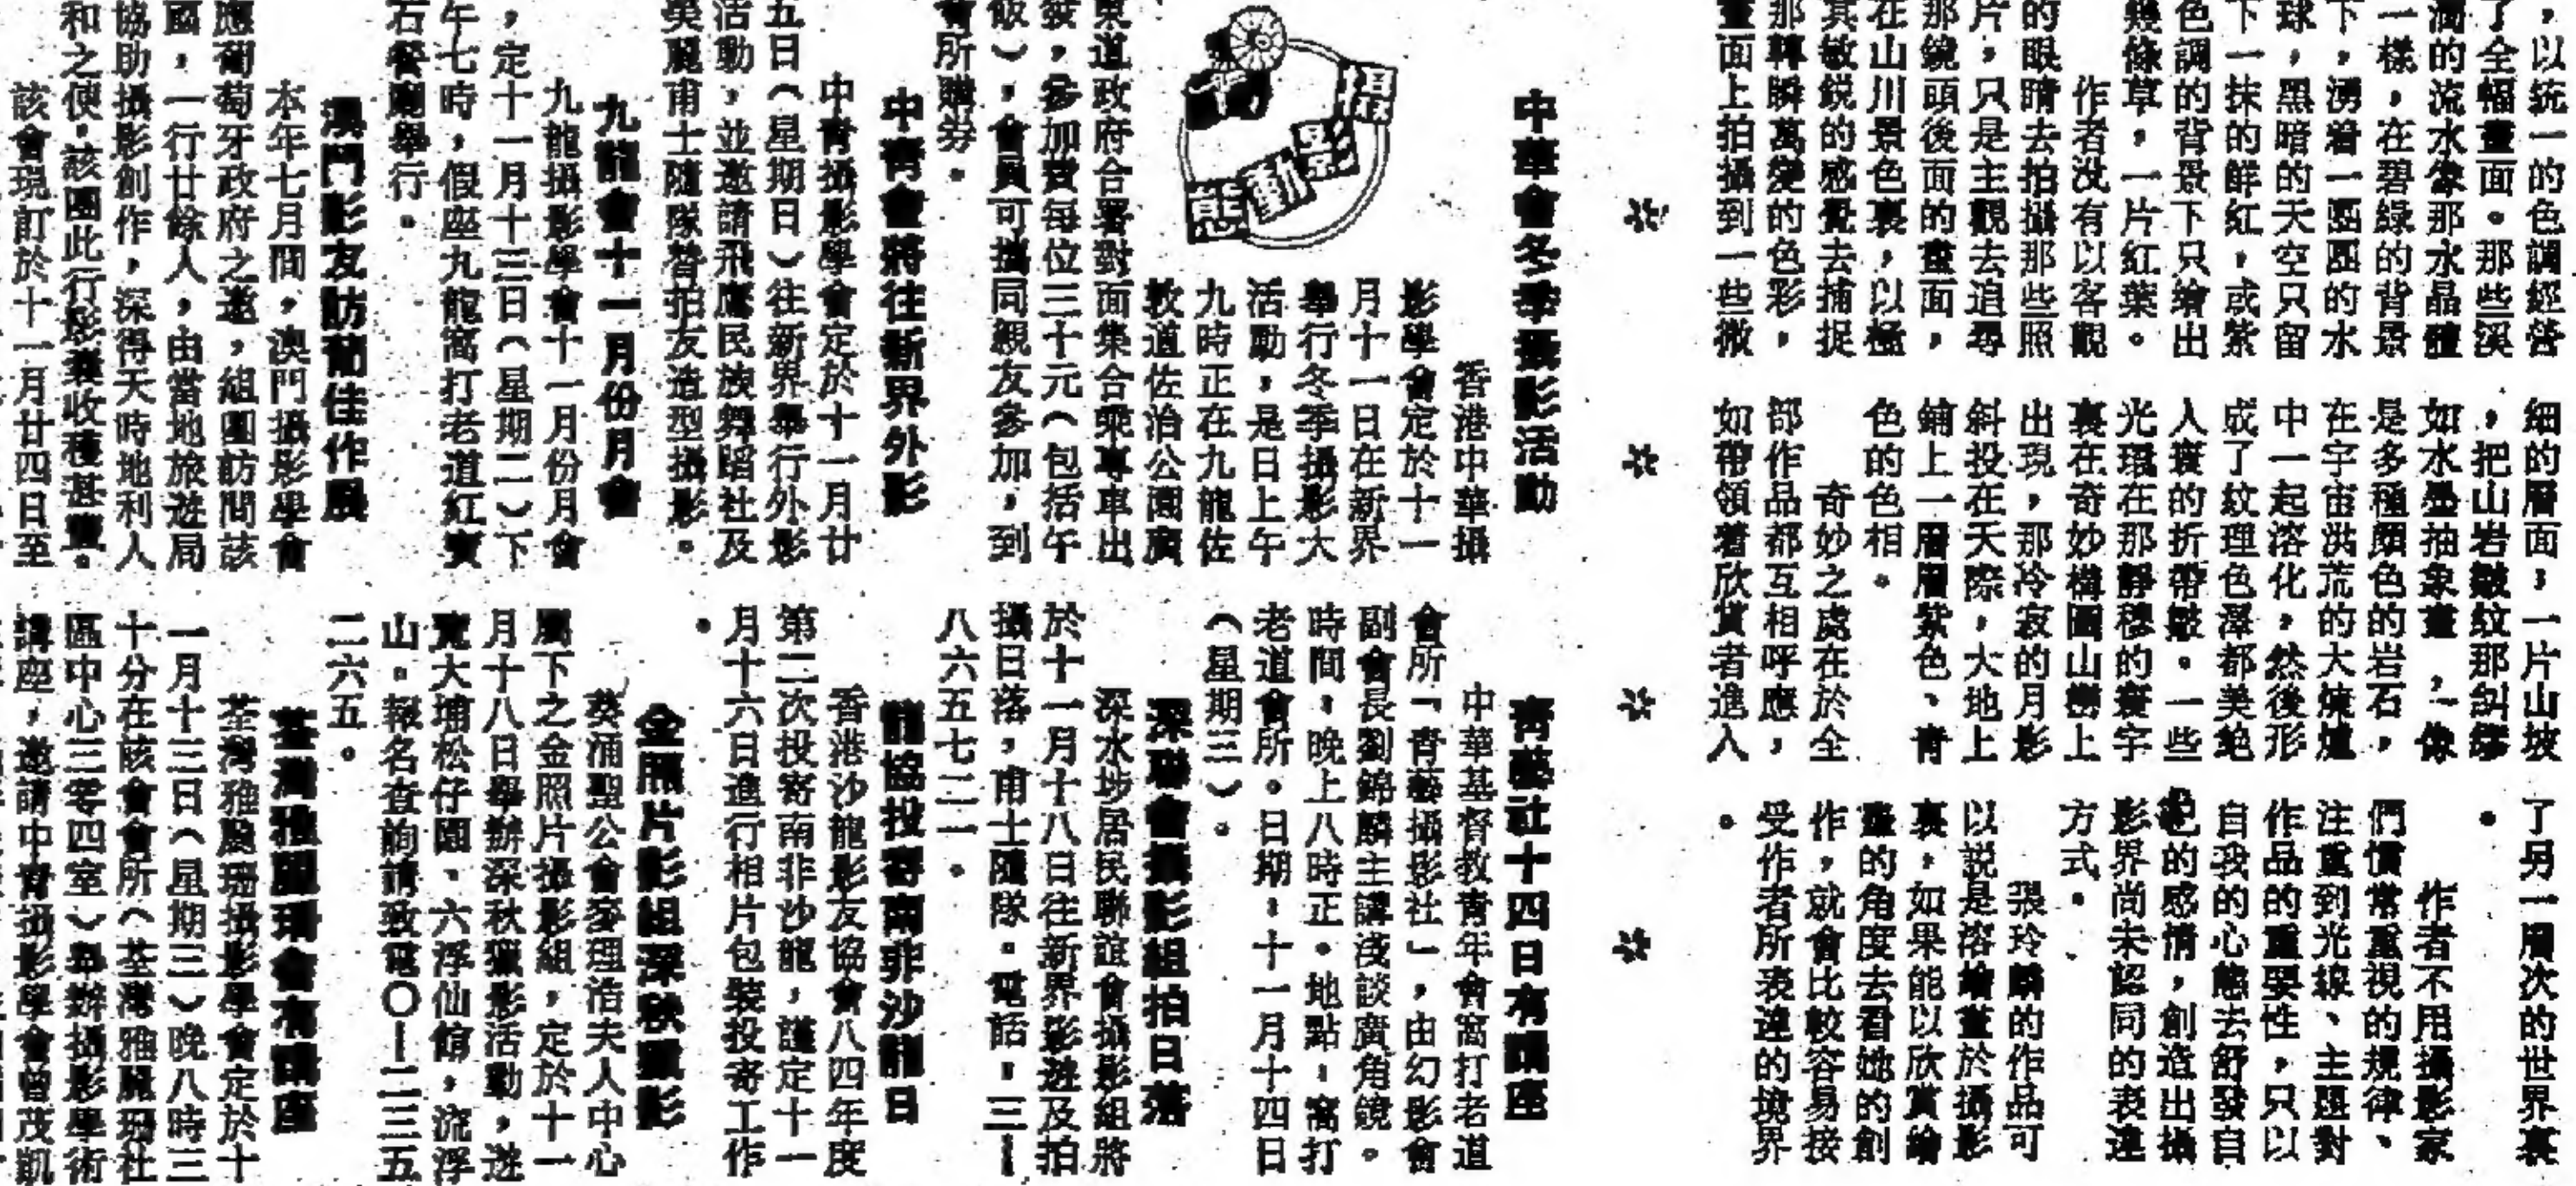 ，以統一的色調經營
了全幅畫面。那些溪
澗的流水像那水晶體
一樣，在碧綠的背景
下，湧着一團團的水
球，黑暗的天空只留
下一抹的鮮紅，或紫
色調的背景下只繪出
幾條草，一片紅葉。
作者没有以客觀
的眼睛去拍攝那些照
片，只是主觀去追尋
那鏡頭後面的畫面，
在山川景色裏，以極
其敏銳的感覺去捕捉
那轉瞬萬變的色彩，
畫面上拍攝到一些微
細的層面，一片山坡
，把山岩皺紋那糾繆
如水墨抽象畫，一像
是多種顏色的岩石，
在宇宙洪荒的大熔爐
中一起溶化，然後形
成了紋理色澤都美絕
人寰的折帶皺。一些
光環在那靜穆的寰宇
裏在奇妙構圖山巒上
出現，那冷寂的月影
斜投在天際，大地上
鋪上一層層紫色、青
色的色相。
奇妙之處在於全
部作品都互相呼應，
如帶領着欣賞者進入
了另一層次的世界裏
。
作者不用攝影家
們慣常重視的規律、
注重到光線、主題對
作品的重要性，只以
自我的心態去舒發自
己的感情，創造出攝
影界尚未認同的表達
方式。
張玲麟的作品可
以說是溶繪畫於攝影
裏，如果能以欣賞繪
畫的角度去看她的創
作，就會比較容易接
受作者所表達的境界
。
影動態
中華會冬季攝影活動
香港中華攝
影學會定於十一
月十一日在新界
舉行冬季攝影大
活動，是日上午
九時正在九龍佐
敦道佐治公園廣
東道政府合署對面集合乘專車出
發，參加費每位三十元（包括午
飯），會員可攜同親友參加，到
會所購券。
中青會將往新界外影
中青攝影學會定於十一月廿
五日（星期日）往新界舉行外影
活動，並邀請飛鷹民族舞蹈社及
吳麗甫士隨隊替拍友造型攝影。
九龍會十一月份月會
九龍攝影學會十一月份月會
，定十一月十三日（星期二）下
午七時，假座九龍窩打老道紅寶
石餐廳舉行。
澳門影友訪葡佳作展
本年七月間，澳門攝影學會
應葡萄牙政府之邀，組團訪問該
國，一行廿餘人，由當地旅遊局
協助攝影創作，深得天時地利人
和之便，該團此行影囊收穫甚豐。
該會現訂於十一月廿四日至
青藝社十四日有講座
中華基督教青年會窩打老道
會所「青藝攝影社」，由幻影會
副會長劉錦麟主講淺談廣角鏡。
時間：晚上八時正。地點：窩打
老道會所。日期：十一月十四日
（星期三）。
深聯會攝影組拍日落
深水埗居民聯誼會攝影組將
於十一月十八日往新界影遊及拍
攝日落，甫士隨隊。電話：三—
八六五七二一。
龍協投寄南非沙龍日
香港沙龍影友協會八四年度
第二次投寄南非沙龍，謹定十一
月十六日進行相片包裝投寄工作
。
金照片影組深秋獵影
葵涌聖公會麥理浩夫人中心
屬下之金照片攝影組，定於十一
月十八日舉辦深秋獵影活動，遊
覽大埔松仔園、六浮仙館，流浮
山。報名查詢請致電〇—二三五
二六五。
荃灣雅麗珊會有講座
荃灣雅麗珊攝影學會定於十
一月十三日（星期三）晚八時三
十分在該會會所（荃灣雅麗珊社
區中心三零四室）舉辦攝影學術
講座，邀請中青攝影學會曾茂凱